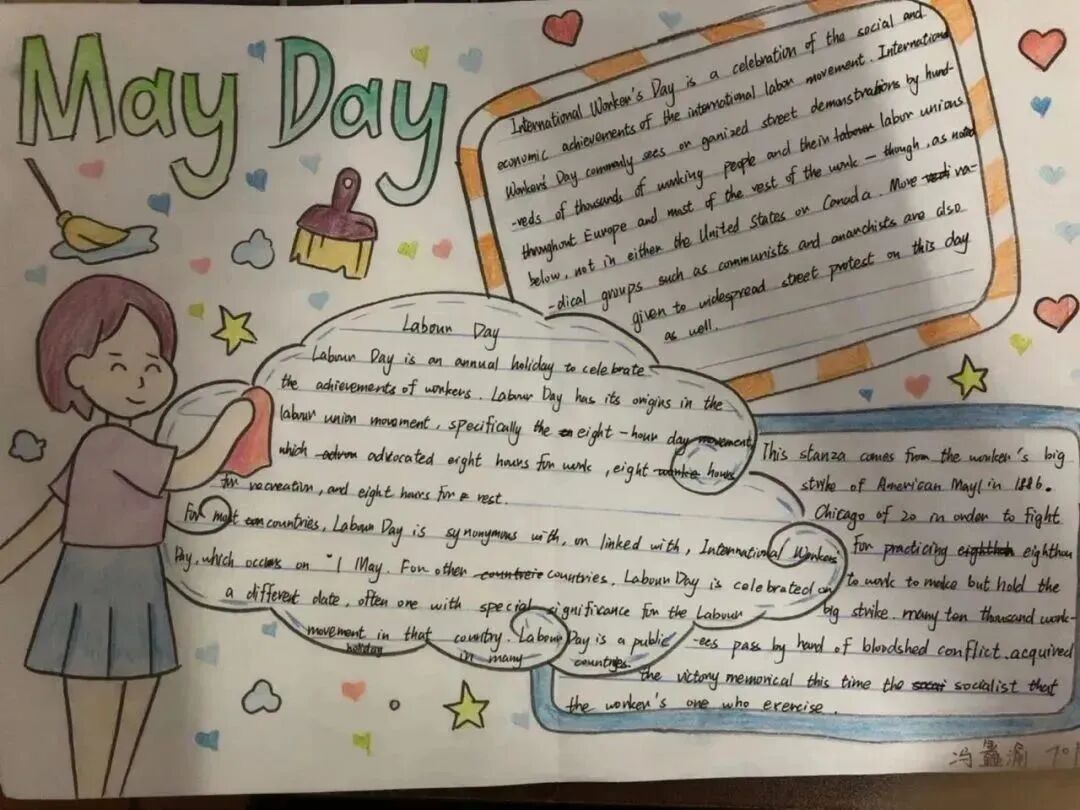 May Day
International Worker's Day is a celebration of the social and
economic achievements of the international labor movement. International
Workers' Day commonly sees on ganized street demanstrations by hund-
-reds of thousands of working people and thein labour labor unions
throughout Europe and most of the rest of the work — though, as noted
below, not in either the United States or Canada. More radi ra-
-dical groups such as communists and anarchists are also
given to widespread street protest on this day
as well.
Labour Day
Labour Day is an annual holiday to celebrate
the achievements of workers. Labour Day has its origins in the
labour union movement, specifically the eight-hour day movement
which advocated eight hours for work, eight hours
for recreation, and eight hours for rest.
For most countries, Labour Day is synonymous with, or linked with, International Workers
Day, which occurs on "1 May. For other countreie countries, Labour Day is celebrated on
a different date, often one with special significance for the Labour
movement in that country. Labour Day is a public
holiday in many countries.
This stanza comes from the worker's big
strike of American May1 in 1886.
Chicago of 20 in order to fight
for practicing eighthan
to work to make but hold the
big strike. many ten thousand work-
-ees pass by hard of bloodshed conflict. acquired
the victory memorical this time the socialist that
the worker's one who exercise.
冯